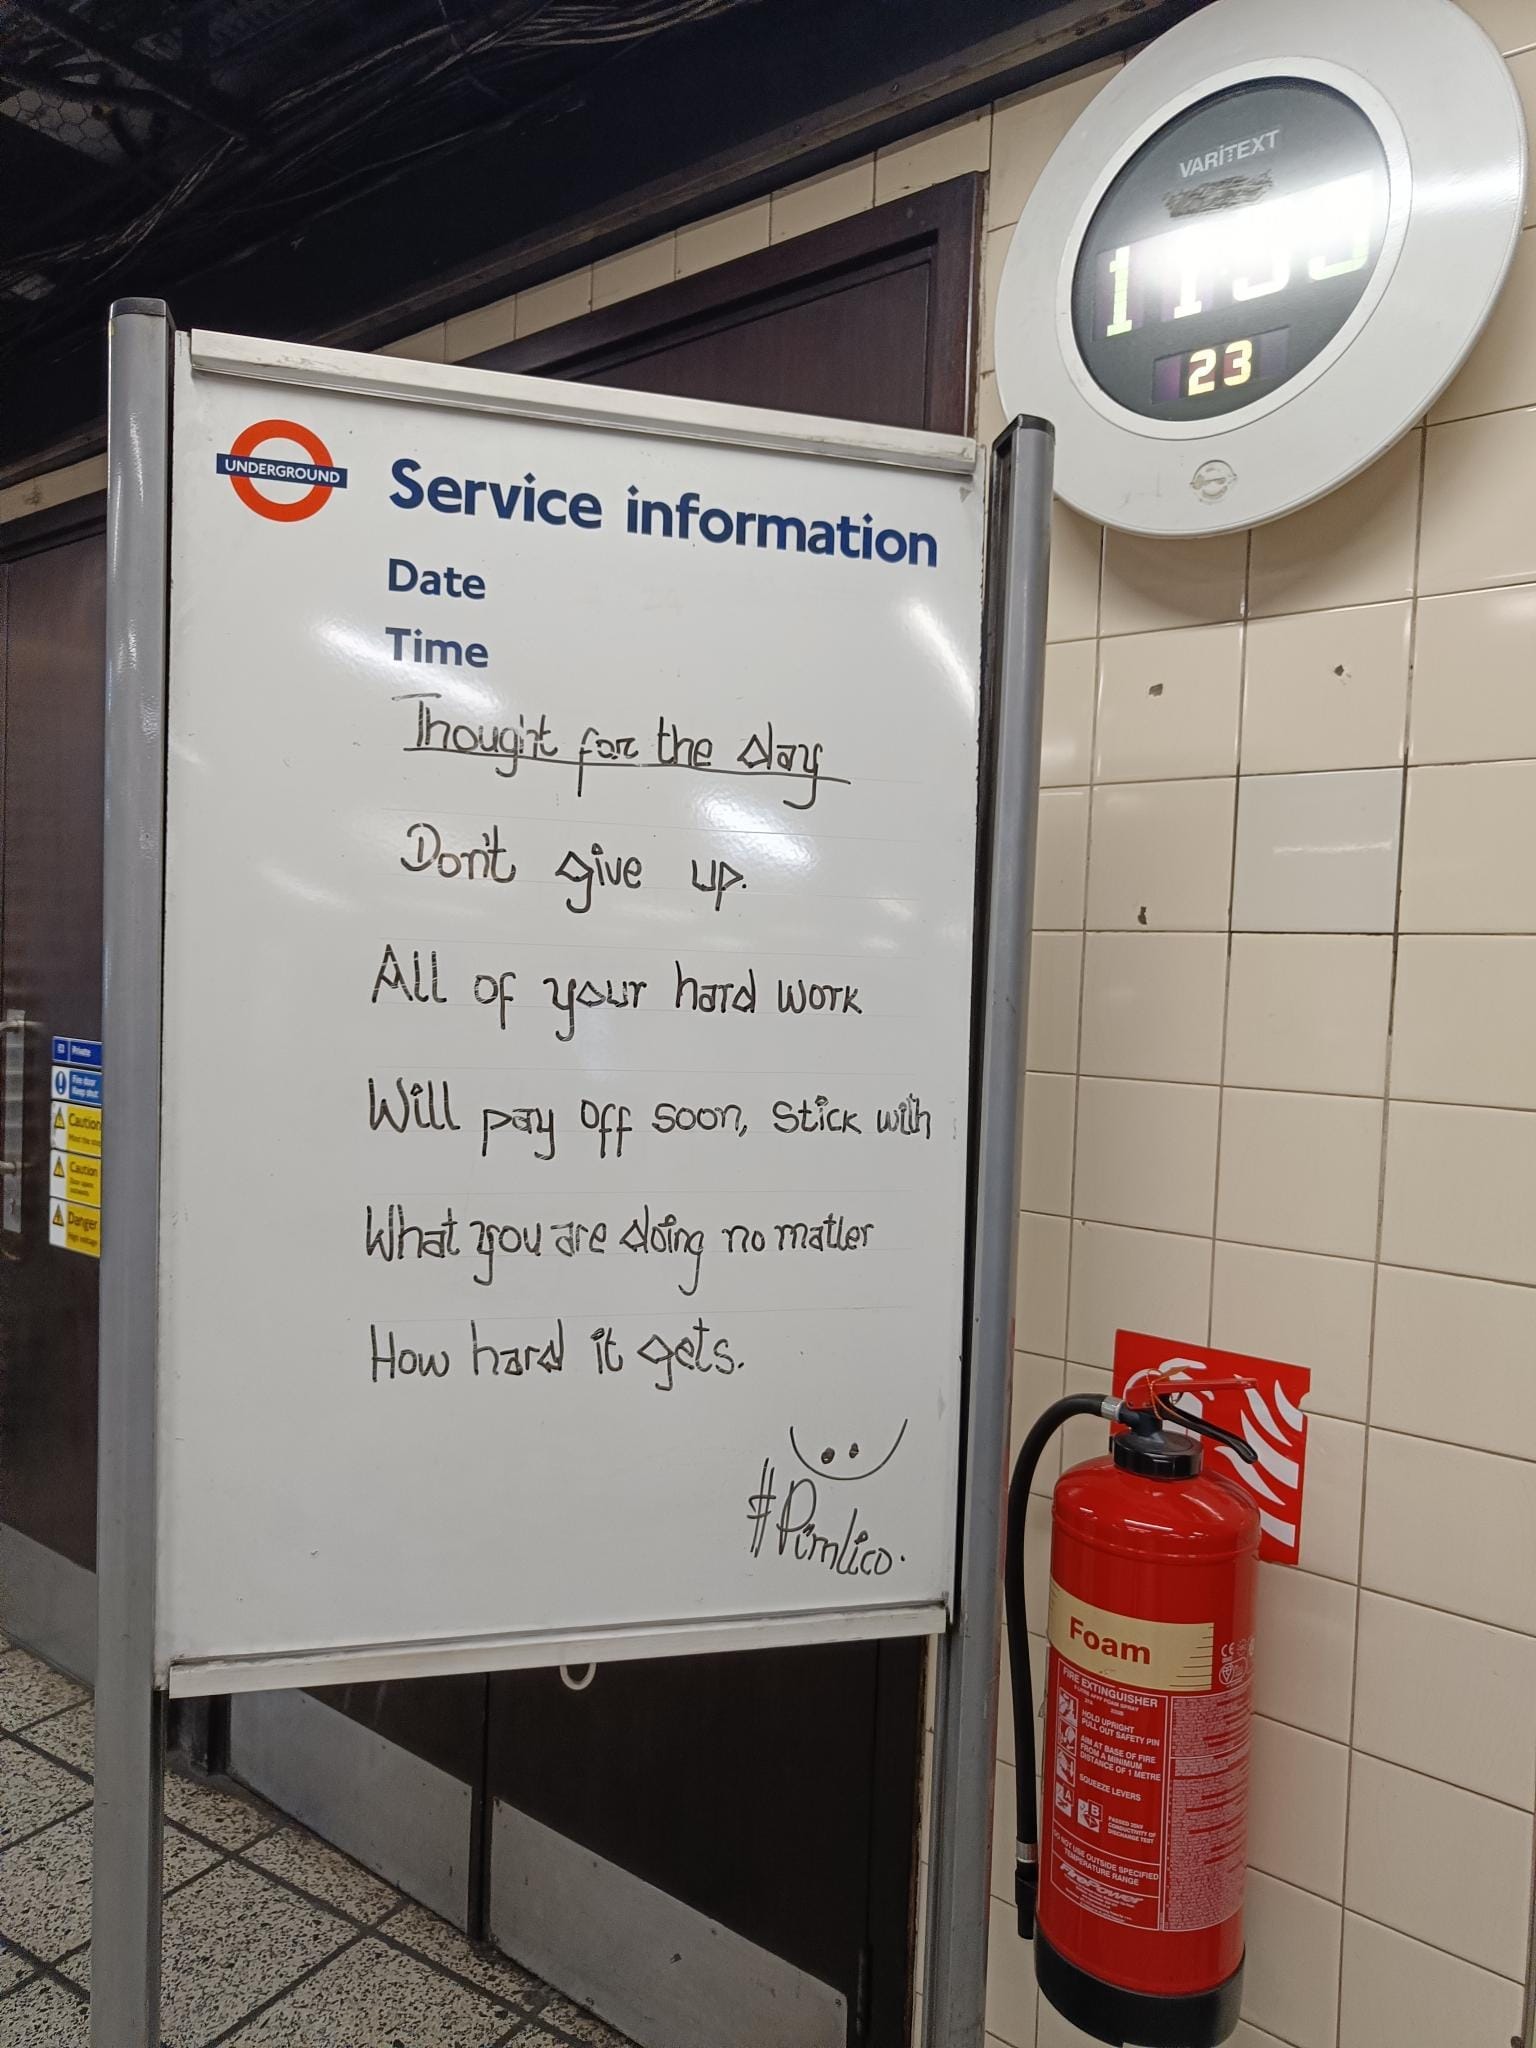 VARITEXT
23
UNDERGROUND
Service information
Date
Time
Thought for the day
Don't give up.
All of your hard work
Will pay off soon, stick with
What you are doing no matter
How hard it gets.
#Pimlico.
Private
Fire door
Keep shut
Caution
Caution
Danger
Foam
FIRE EXTINGUISHER
HOLD UPRIGHT
PULL OUT SAFETY PIN
AIM AT BASE OF FIRE
FROM A MINIMUM
DISTANCE OF 1 METRE
SQUEEZE LEVERS
A
B
PASSED 35KV
CONDUCTIVITY OF
DISCHARGE TEST
DO NOT USE OUTSIDE SPECIFIED
TEMPERATURE RANGE
FirePower